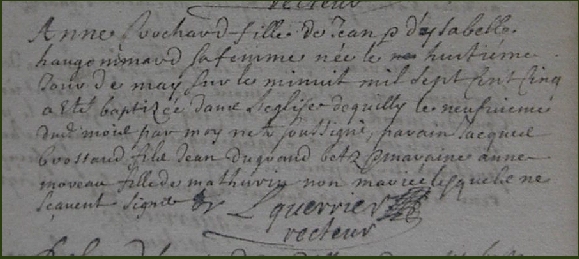 recteur
Anne Rochard fille de Jean & d'ysabelle
haugommard sa femme née le huitiéme
Jour de may sur le minuit mil sept cent cinq
a eté baptizée dans l'eglise de quilly le neufviemé
dud mois par moy soussigné, parain Jacques
brossaud fils Jean du grand betz & maraine anne
moreau fille de mathurin non mariee lesquels ne
sçavent signer
L guerrier
recteur